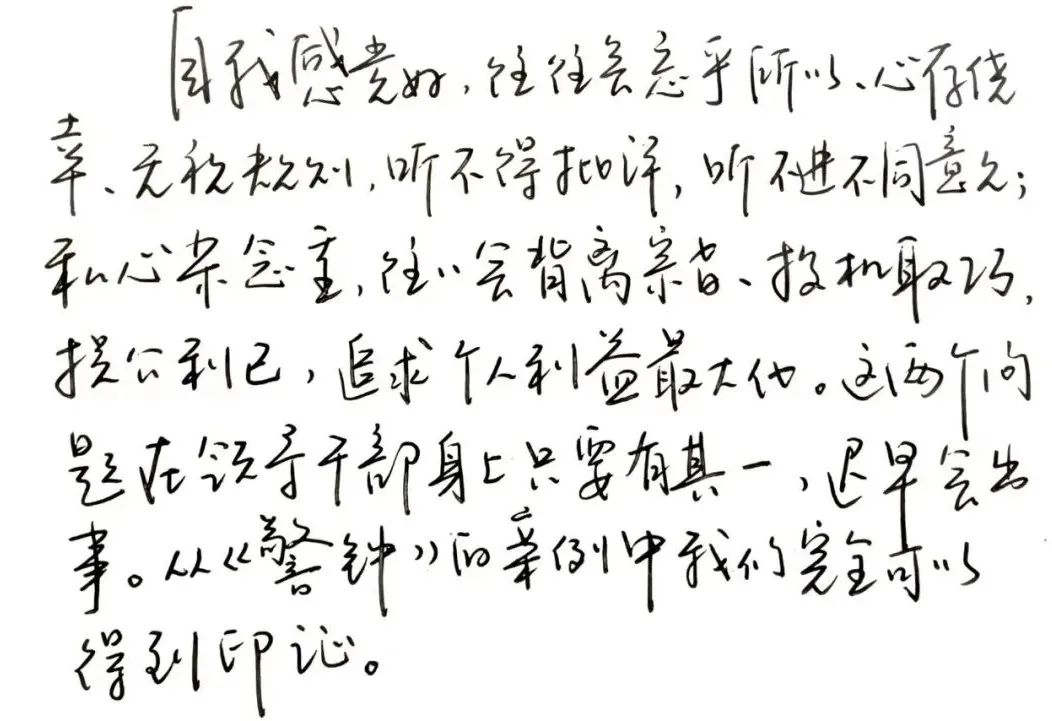 自我感觉好，往往会忘乎所以、心存侥
幸、无视规则，听不得批评，听不进不同意见；
私心杂念重，往往会背离宗旨、投机取巧，
损公利己，追求个人利益最大化。这两个问
题在领导干部身上只要有其一，迟早会出
事。从《警钟》的案例中我们完全可以
得到印证。